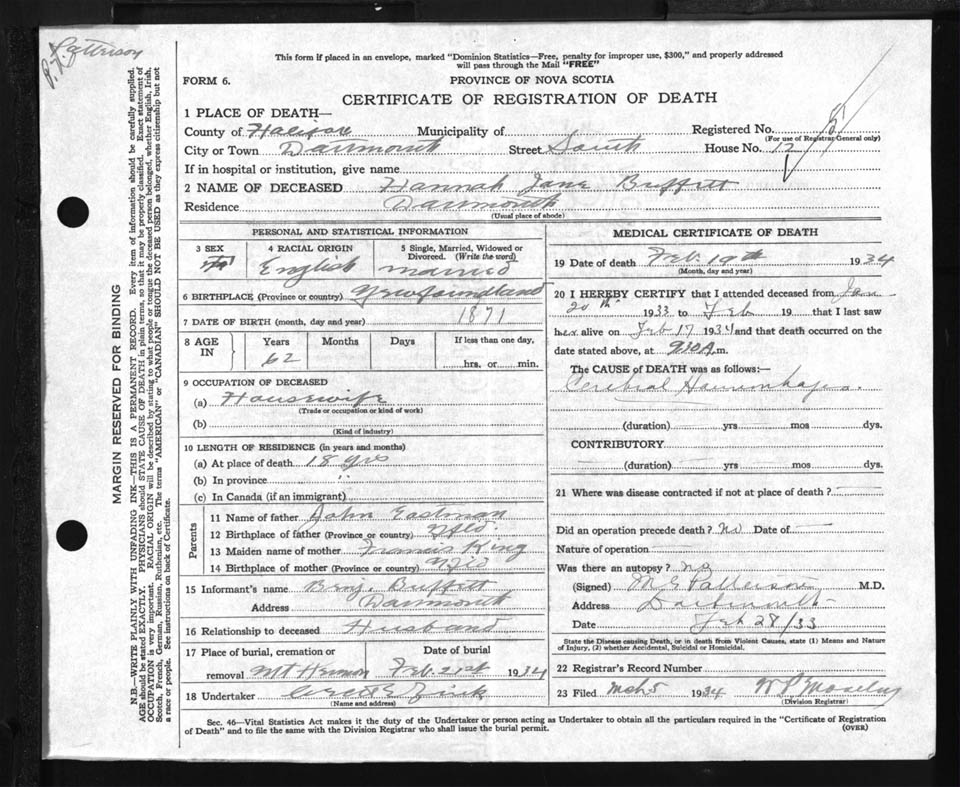 Patterson
This form if placed in an envelope, marked "Dominion Statistics—Free, penalty for improper use, $300," and properly addressed
will pass through the Mail "FREE"
FORM 6.
PROVINCE OF NOVA SCOTIA
CERTIFICATE OF REGISTRATION OF DEATH
1 PLACE OF DEATH—
County of Halifax Municipality of Registered No.
(For use of Registrar General only)
City or Town Dartmouth Street South House No. 12
If in hospital or institution, give name
2 NAME OF DECEASED Hannah Jane Buffett
Residence Dartmouth
(Usual place of abode)
PERSONAL AND STATISTICAL INFORMATION
3 SEX
4 RACIAL ORIGIN
English
5 Single, Married, Widowed or Divorced. (Write the word)
married
6 BIRTHPLACE (Province or country) Newfoundland
7 DATE OF BIRTH (month, day and year) 1871
8 AGE IN
Years Months Days If less than one day,
62
hrs. or min.
9 OCCUPATION OF DECEASED
(a) Housewife
(Trade or occupation or kind of work)
(b)
(Kind of industry)
10 LENGTH OF RESIDENCE (in years and months)
(a) At place of death 18 yrs
(b) In province "
(c) In Canada (if an immigrant)
Parents
11 Name of father John Eastman
12 Birthplace of father (Province or country) Nfld.
13 Maiden name of mother Francis King
14 Birthplace of mother (Province or country) Nfld
15 Informant's name Benj. Buffett
Address Dartmouth
16 Relationship to deceased Husband
17 Place of burial, cremation or Date of burial
removal Mt Hermon Feb 21st 1934
18 Undertaker Zink
(Name and address)
MEDICAL CERTIFICATE OF DEATH
19 Date of death Feb 19th 1934
(Month, day and year)
20 I HEREBY CERTIFY that I attended deceased from Jan
20th 1933 to Feb 19 that I last saw
her alive on Feb 17 1934 and that death occurred on
date stated above, at 930 A.m.
The CAUSE of DEATH was as follows:
Cerebral Haemorrhage.
(duration) yrs mos dys.
CONTRIBUTORY
(duration) yrs mos dys.
21 Where was disease contracted if not at place of death?
Did an operation precede death? No Date of
Nature of operation
Was there an autopsy? no
(Signed) M G Patterson M.D.
Address Dartmouth
Date Feb 28/33
State the Disease causing Death, or in death from Violent Causes, state (1) Means and Nature
of Injury, (2) whether Accidental, Suicidal or Homicidal.
22 Registrar's Record Number
23 Filed Mch 5 1934
(Division Registrar)
Sec. 46—Vital Statistics Act makes it the duty of the Undertaker or person acting as Undertaker to obtain all the particulars required in the "Certificate of Registration
of Death" and to file the same with the Division Registrar who shall issue the burial permit. (OVER)
MARGIN RESERVED FOR BINDING
N.B.—WRITE PLAINLY WITH UNFADING INK—THIS IS A PERMANENT RECORD. Every item of information should be carefully supplied.
AGE should be stated EXACTLY. PHYSICIANS should STATE CAUSE OF DEATH in plain terms, so that it may be properly classified. Exact statement of
OCCUPATION is very important. RACIAL ORIGIN will be described by stating to what people or tongue the deceased person belonged, whether English, Irish,
Scotch, French, German, Russian, Ruthenian, etc. The terms "AMERICAN" or "CANADIAN" SHOULD NOT BE USED as they express citizenship but not
a race or people. See instructions on back of Certificate.